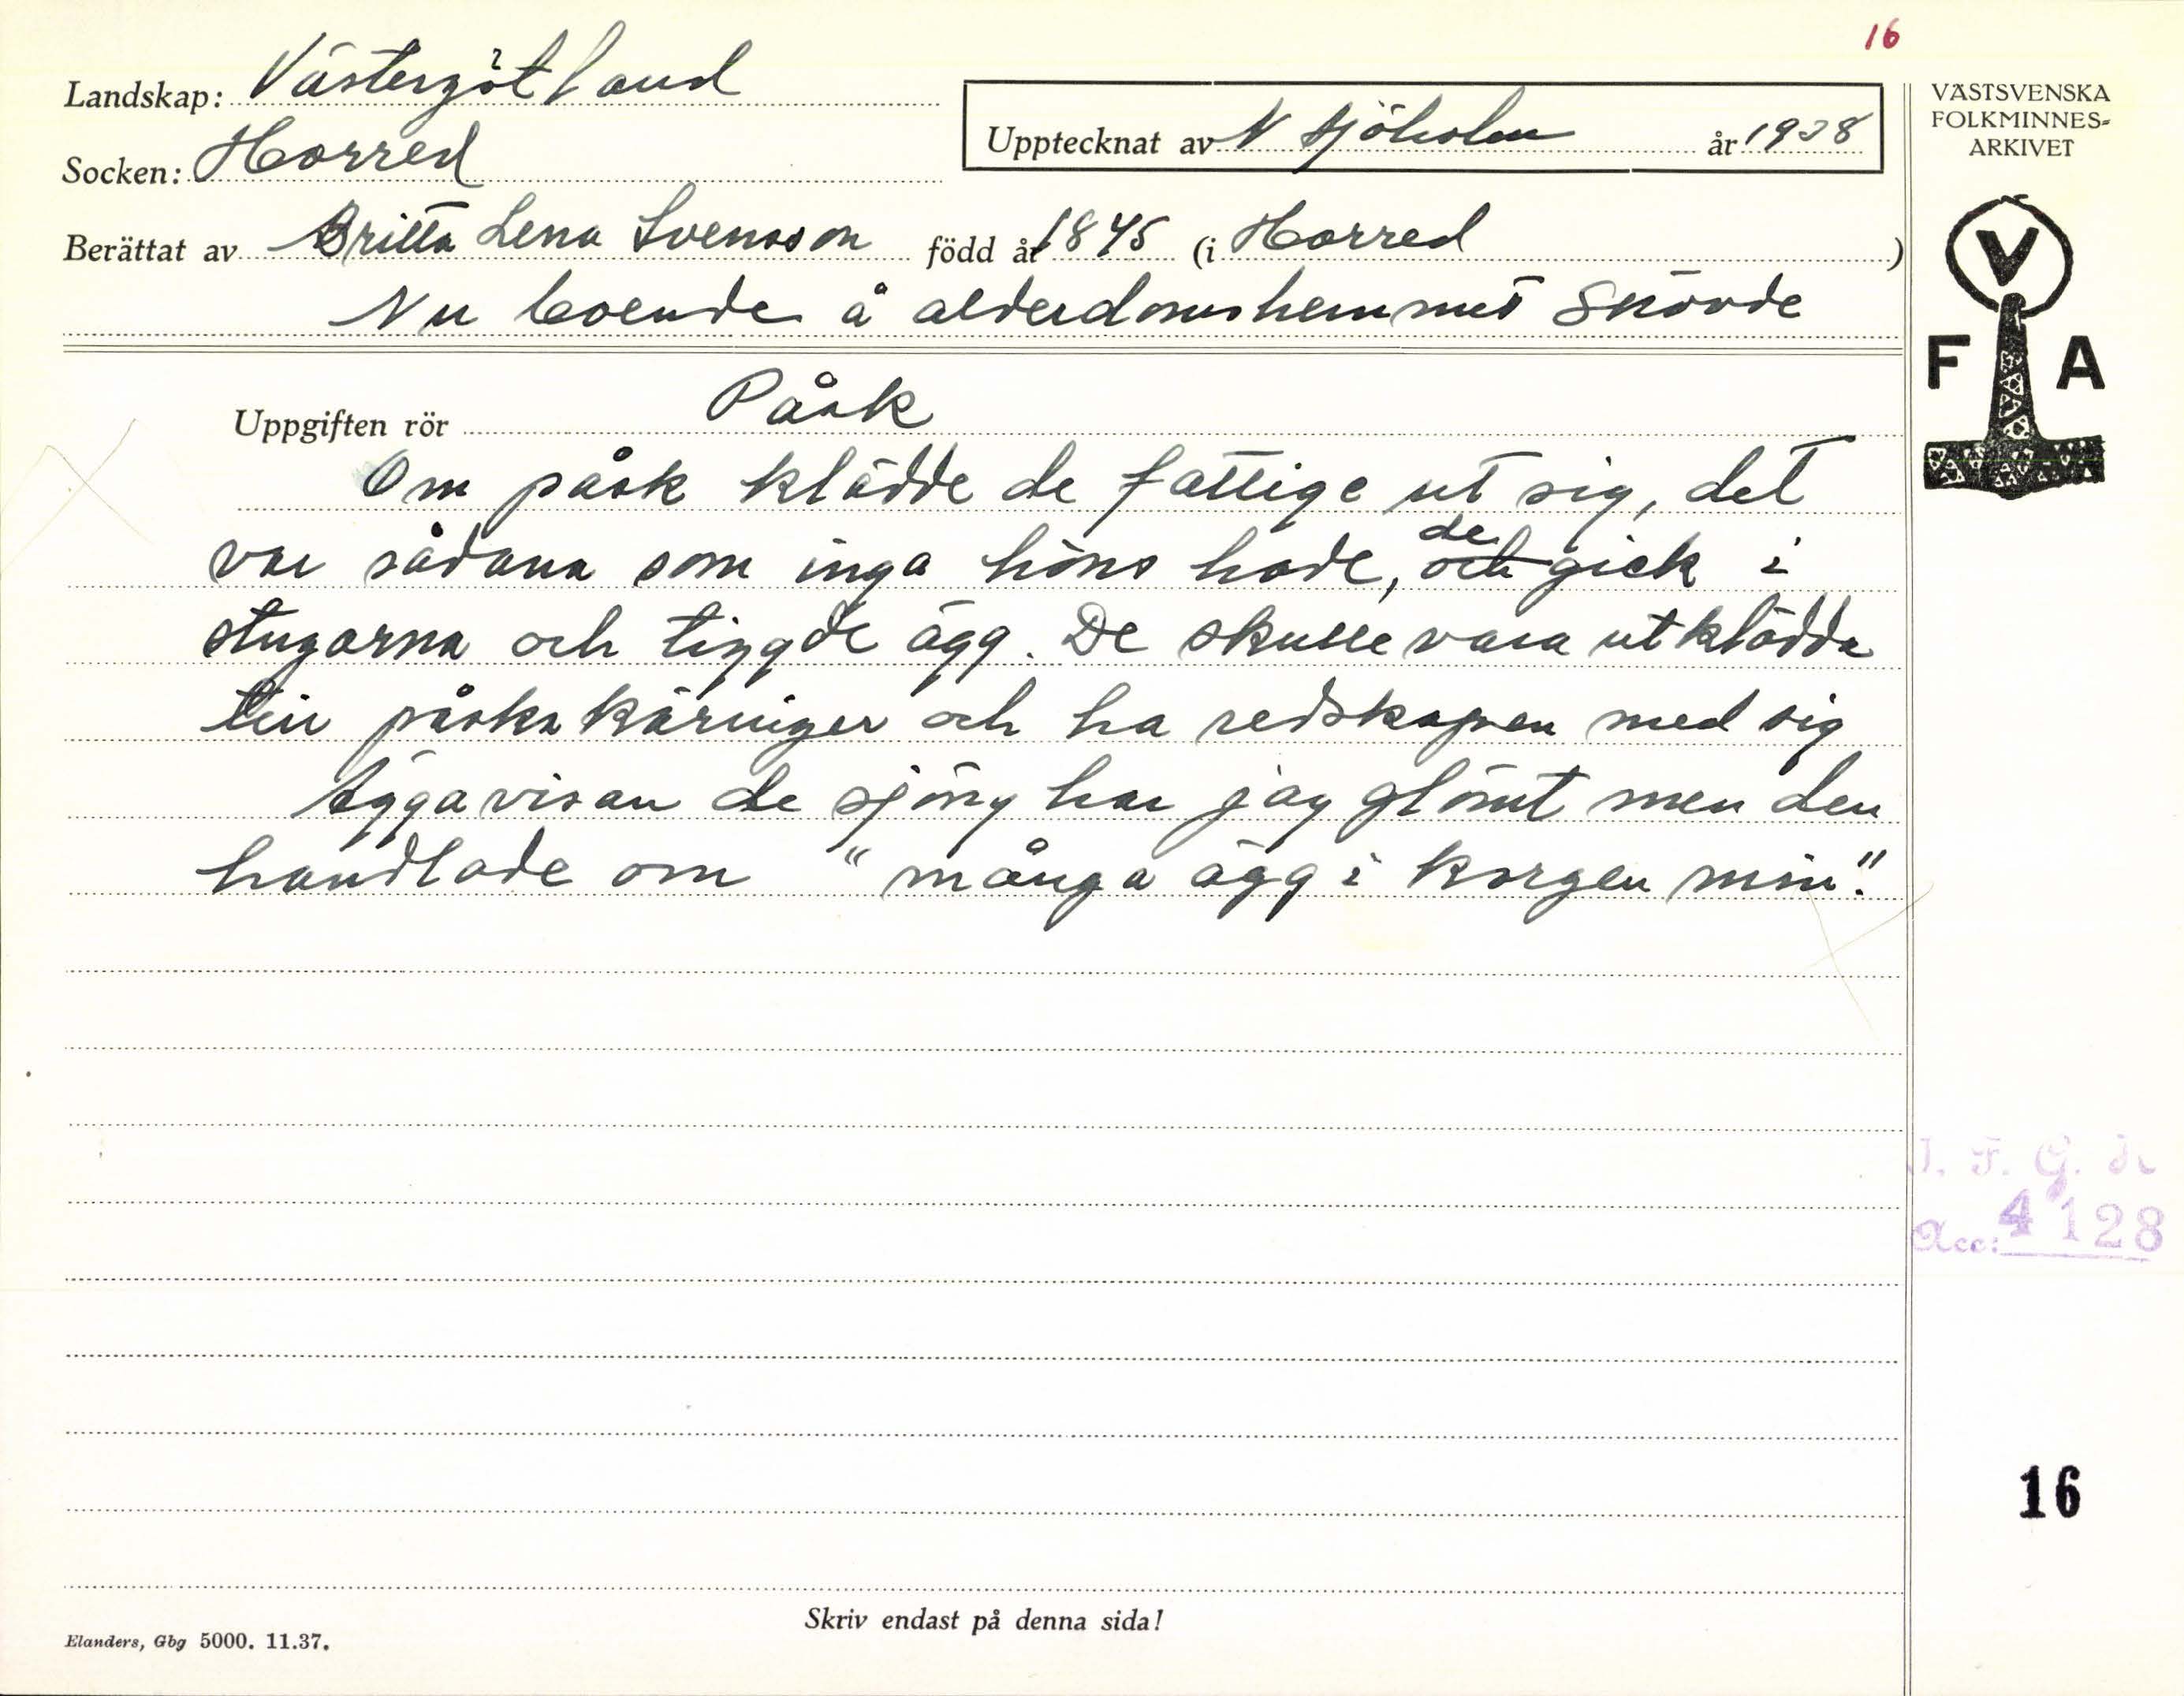 16
Landskap: Västergötland
Socken: Horred
Upptecknat av N Sjöholm år 1938
Berättat av Britta Lena Svensson född år 1845 (i Horred)
Nu boende å alderdomshemmet Skövde
Uppgiften rör Påsk
Om påsk klädde de fattige ut sig, det
var sådana som inga höns hade, de och gick i
stugorna och tiggde ägg. De skulle vara utklädda
till påskakäringer och ha redskapen med sig
Äggavisan de sjöng har jag glömt men den
handlade om "många ägg i korgen min".
Skriv endast på denna sida!
Elanders, Gbg 5000. 11.37.
VÄSTSVENSKA
FOLKMINNES=
ARKIVET
V
F A
I. F. G. 
Acc: 4128
16